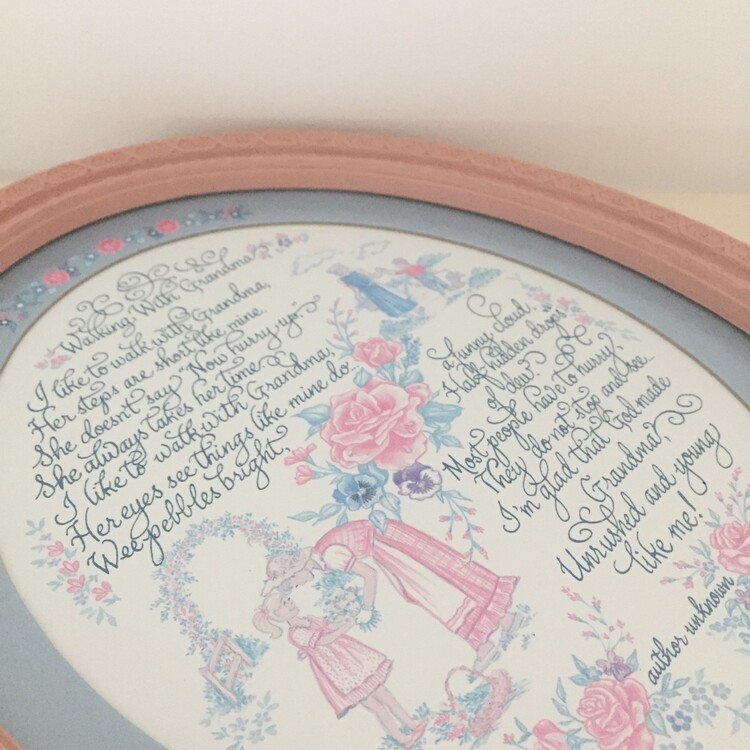 Walking With Grandma
I like to walk with Grandma,
Her steps are short like mine.
She doesn't say "Now hurry up."
She always takes her time.
I like to walk with Grandma,
Her eyes see things like mine do
Wee pebbles bright
a funny cloud,
Half hidden drops
of dew?
Most people have to hurry
They do not stop and see
I'm glad that God made
Grandma?,
Unrushed and young
like me!
author unknown